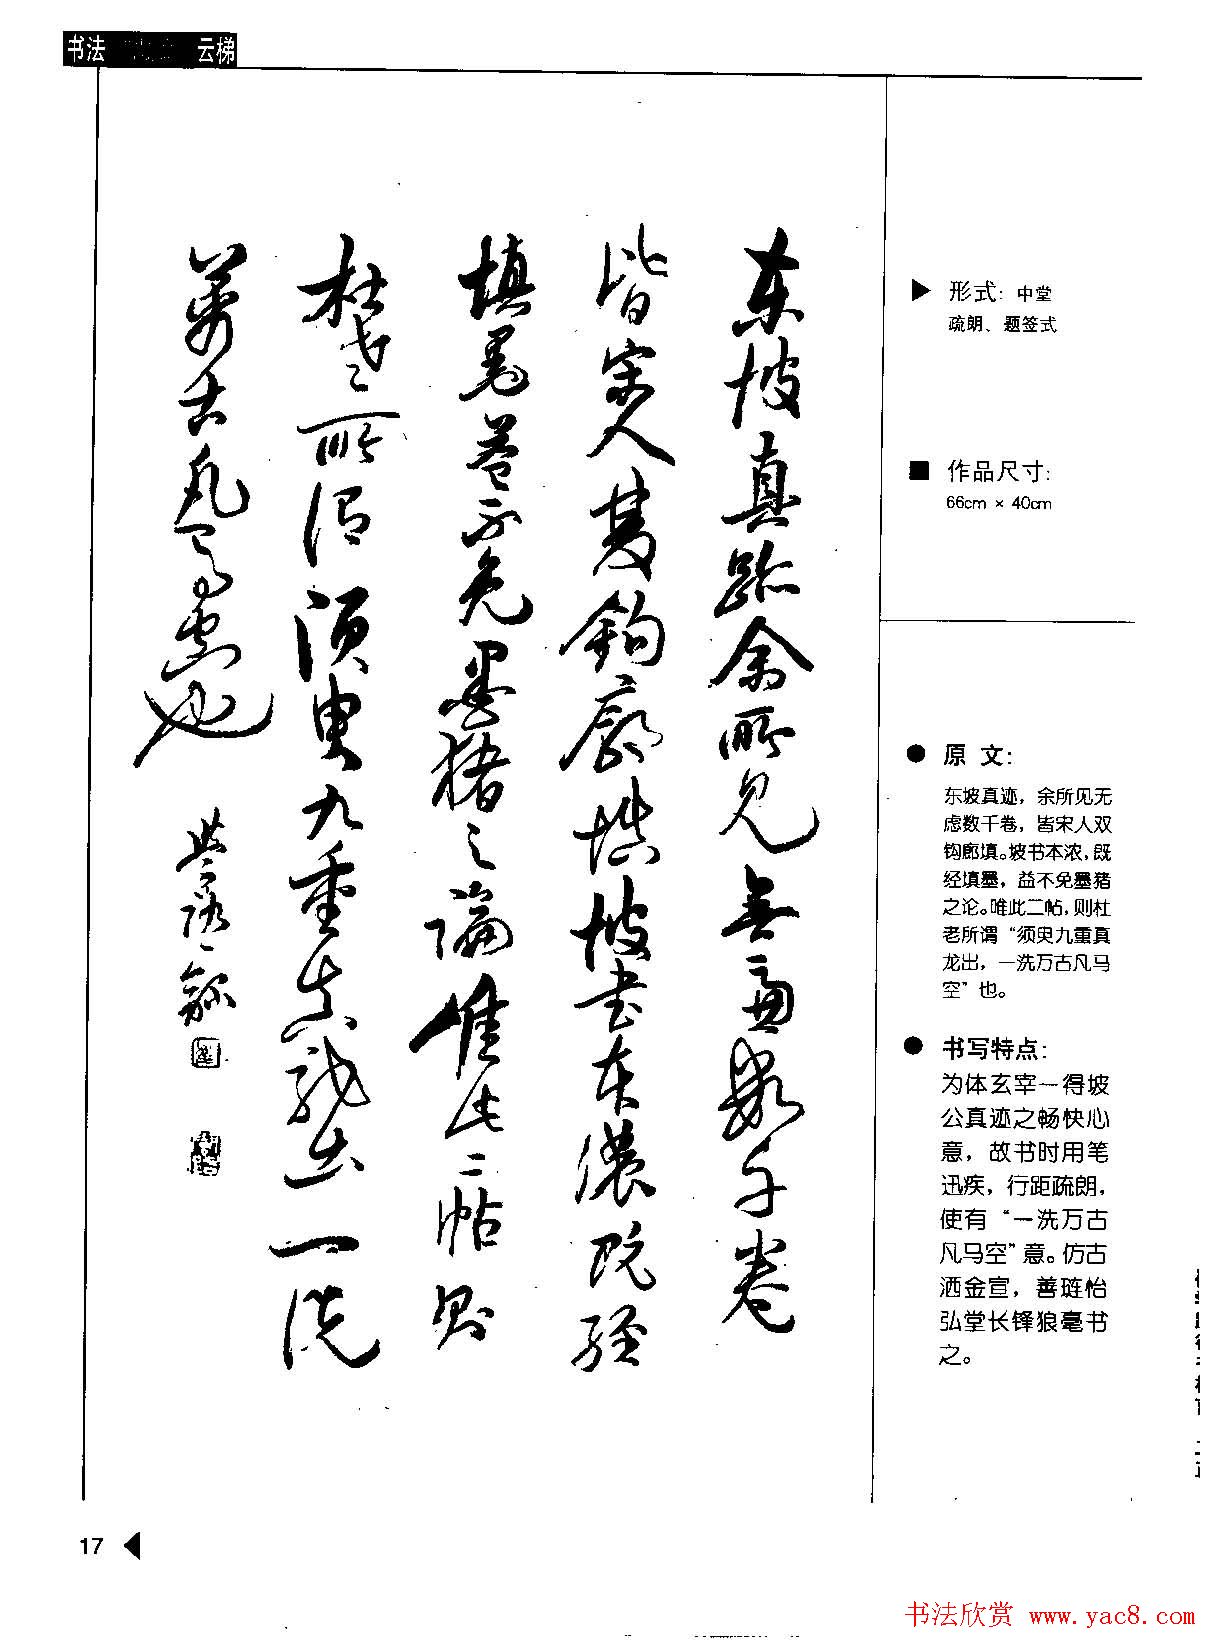 书法 云梯
东坡真跡余所见無慮數千卷
皆宋人雙鈎廓填坡書本濃既經
填墨益不免墨猪之論唯此二帖則
杜老所谓须臾九重真龙出一洗
萬古凡馬空也
▶ 形式：中堂
疏朗、题签式
■ 作品尺寸：
66cm × 40cm
● 原 文：
东坡真迹，余所见无
虑数千卷，皆宋人双
钩廊填。坡书本浓，既
经填墨，益不免墨猪
之论。唯此二帖，则杜
老所谓“须臾九重真
龙出，一洗万古凡马
空”也。
● 书写特点：
为体玄宰一得坡
公真迹之畅快心
意，故书时用笔
迅疾，行距疏朗，
使有“一洗万古
凡马空”意。仿古
洒金宣，善琏怡
弘堂长锋狼毫书
之。
17 ◀
书法欣赏 www.yac8.com